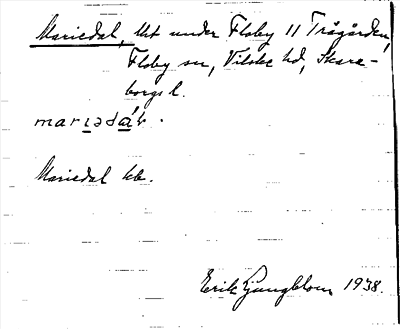 Mariedal, lht under Floby 11 Trägården,
Floby sn, Vilske hd, Skara-
borgs l.
mariedal.
Mariedal kb.
Erik Ljungblom 1938.